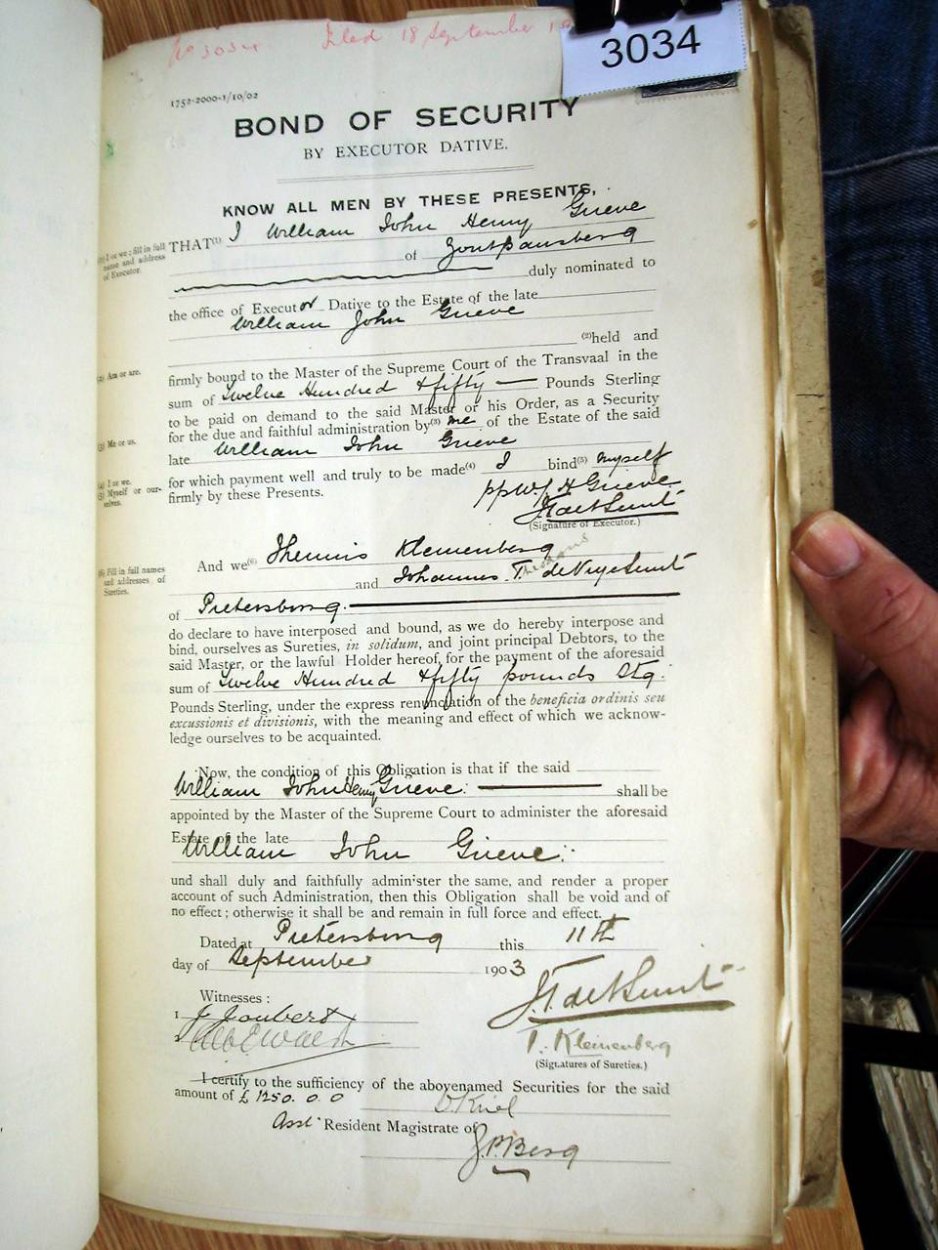 No 3034 Filed 18 September
3034
1752-2000-1/10/02
BOND OF SECURITY
BY EXECUTOR DATIVE.
KNOW ALL MEN BY THESE PRESENTS,
(1) I or we; fill in full name and address of Executor.
THAT(1) I William John Henry Grieve
of Zoutpansberg
duly nominated to
the office of Executor Dative to the Estate of the late
William John Grieve
(2) Am or are.
(2)held and
firmly bound to the Master of the Supreme Court of the Transvaal in the
sum of Twelve Hundred & fifty — Pounds Sterling
to be paid on demand to the said Master or his Order, as a Security
(3) Me or us.
for the due and faithful administration by(3) me of the Estate of the said
late William John Grieve
(4) I or we.
for which payment well and truly to be made(4) I bind(5) myself
(5) Myself or ourselves.
firmly by these Presents.
pp W J H Grieve
(Signature of Executor.)
(6) Fill in full names and addresses of Sureties.
And we(6) Klemenberg
and Johannes T.
of Pietersburg.
do declare to have interposed and bound, as we do hereby interpose and
bind, ourselves as Sureties, in solidum, and joint principal Debtors, to the
said Master, or the lawful Holder hereof, for the payment of the aforesaid
sum of Twelve Hundred & fifty pounds Stg.
Pounds Sterling, under the express renunciation of the beneficia ordinis seu
excussionis et divisionis, with the meaning and effect of which we acknow-
ledge ourselves to be acquainted.
Now, the condition of this Obligation is that if the said
William John Henry Grieve. shall be
appointed by the Master of the Supreme Court to administer the aforesaid
Estate of the late
William John Grieve.
und shall duly and faithfully administer the same, and render a proper
account of such Administration, then this Obligation shall be void and of
no effect; otherwise it shall be and remain in full force and effect.
Dated at Pietersburg this 11th
day of September 1903
Witnesses:
1 J Joubert
2
T. Kleinenberg
(Signatures of Sureties.)
I certify to the sufficiency of the abovenamed Securities for the said
amount of £ 1250. 0. 0
Asst Resident Magistrate of
Z.P.Berg